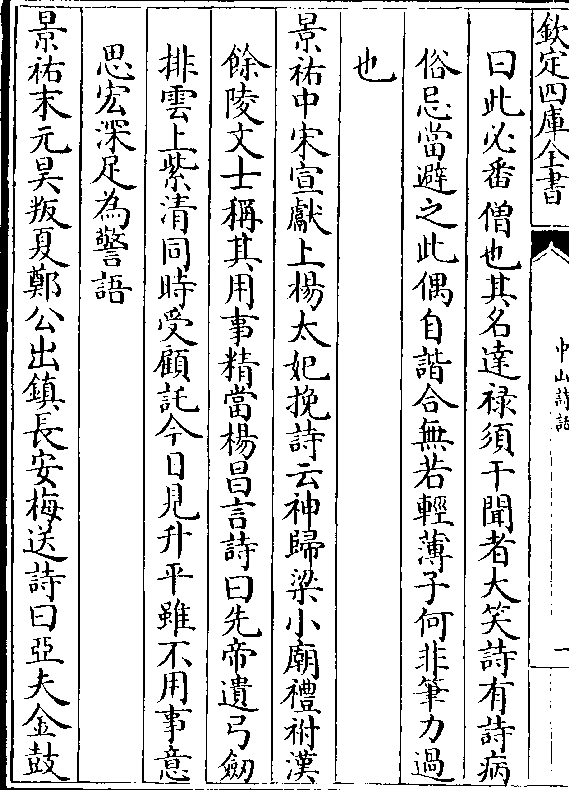 欽定四庫全書
中山詩話
一
曰此必番僧也其名達禄須干聞者大笑詩有詩病
俗忌當避之此偶自諧合無若輕薄子何非筆力過
也
景祐中宋宣獻上楊太妃挽詩云神歸梁小廟禮祔漢
餘陵文士稱其用事精當楊昌言詩曰先帝遺弓劒
排雲上紫清同時受顧託今日見升平雖不用事意
思宏深足為警語
景祐末元昊叛夏鄭公出鎮長安梅送詩曰亞夫金鼓